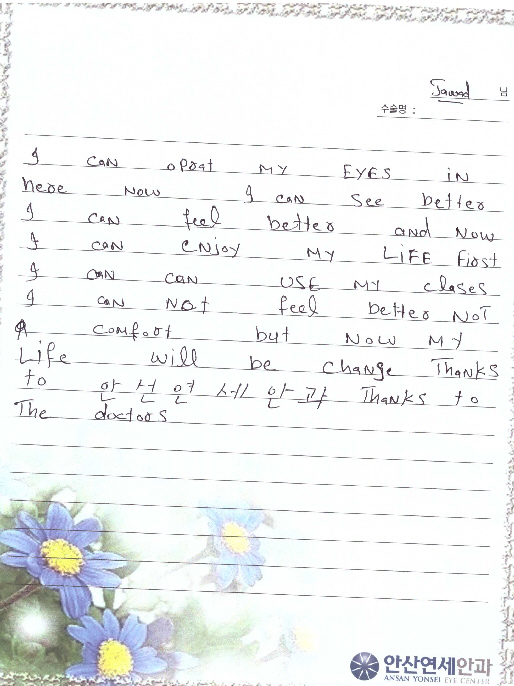 Jawad 님
수술명 :
I can oprat MY EYES iN
here Now I can see better
I can feel better and Now
I can enjoy MY LiFE First
I can can USE MY clases
I can NOt feel better NOT
A comfort but NOW MY
Life will be change Thanks
to 안선연세안과 Thanks to
The doctors
안산연세안과
ANSAN YONSEI EYE CENTER